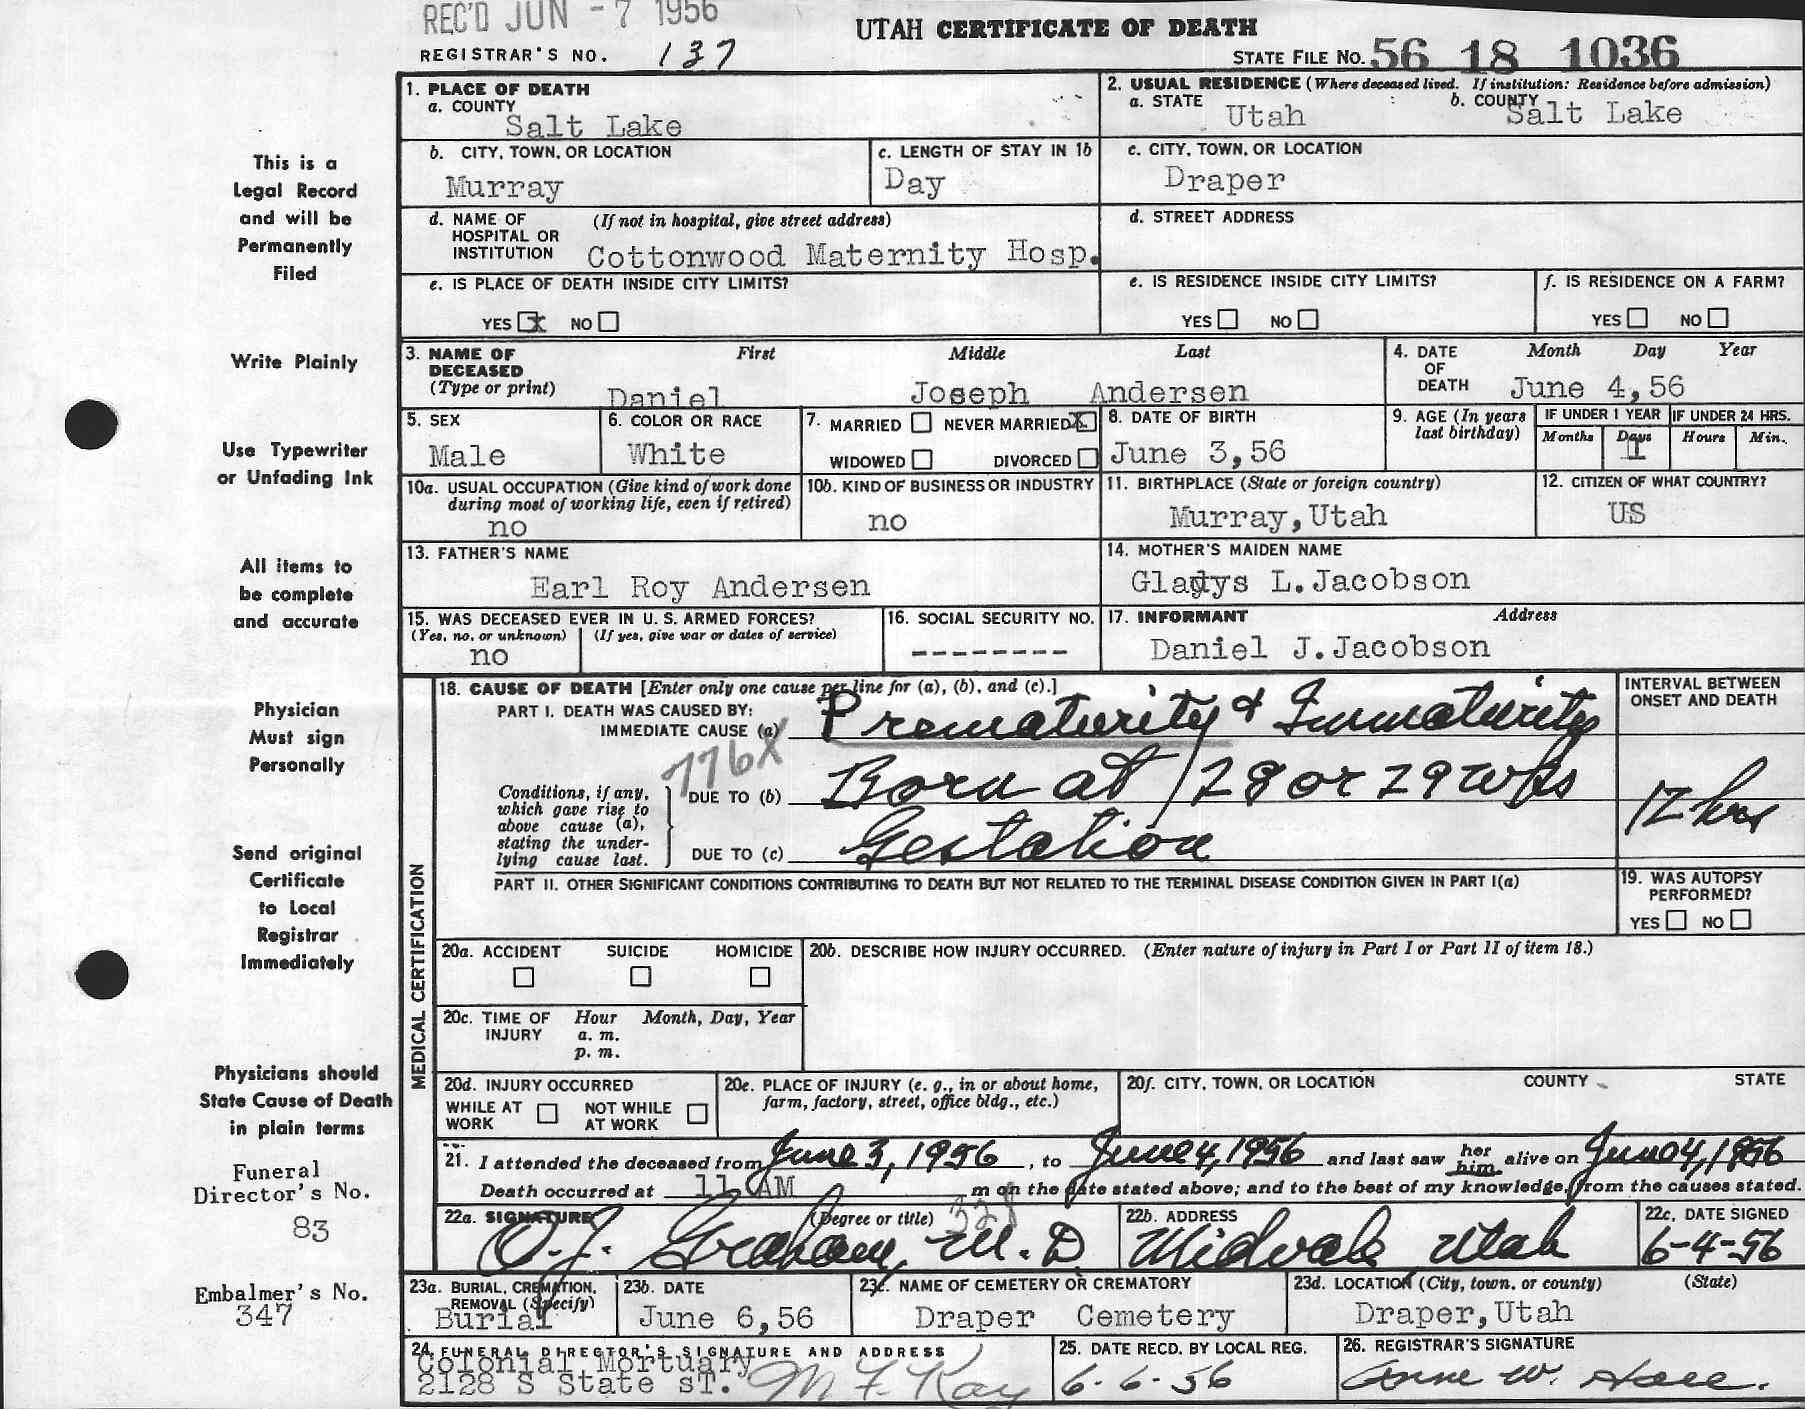 REC'D JUN -7 1956
UTAH CERTIFICATE OF DEATH
REGISTRAR'S NO. 137
STATE FILE NO. 56 18 1036
This is a
Legal Record
and will be
Permanently
Filed
Write Plainly
Use Typewriter
or Unfading Ink
All items to
be complete
and accurate
Physician
Must sign
Personally
Send original
Certificate
to Local
Registrar
Immediately
Physicians should
State Cause of Death
in plain terms
Funeral
Director's No.
83
Embalmer's No.
347
1. PLACE OF DEATH
a. COUNTY
Salt Lake
2. USUAL RESIDENCE (Where deceased lived. If institution: Residence before admission)
a. STATE Utah b. COUNTY Salt Lake
b. CITY, TOWN, OR LOCATION
Murray
c. LENGTH OF STAY IN 1b
Day
c. CITY, TOWN, OR LOCATION
Draper
d. NAME OF HOSPITAL OR INSTITUTION (If not in hospital, give street address)
Cottonwood Maternity Hosp.
d. STREET ADDRESS
e. IS PLACE OF DEATH INSIDE CITY LIMITS?
YES x NO
e. IS RESIDENCE INSIDE CITY LIMITS?
YES NO
f. IS RESIDENCE ON A FARM?
YES NO
3. NAME OF DECEASED (Type or print) First Middle Last
Daniel Joseph Andersen
4. DATE OF DEATH Month Day Year
June 4,56
5. SEX
Male
6. COLOR OR RACE
White
7. MARRIED NEVER MARRIED X
WIDOWED DIVORCED
8. DATE OF BIRTH
June 3,56
9. AGE (In years last birthday)
IF UNDER 1 YEAR IF UNDER 24 HRS.
Months Days Hours Min.
1
10a. USUAL OCCUPATION (Give kind of work done during most of working life, even if retired)
no
10b. KIND OF BUSINESS OR INDUSTRY
no
11. BIRTHPLACE (State or foreign country)
Murray,Utah
12. CITIZEN OF WHAT COUNTRY?
US
13. FATHER'S NAME
Earl Roy Andersen
14. MOTHER'S MAIDEN NAME
Gladys L.Jacobson
15. WAS DECEASED EVER IN U. S. ARMED FORCES?
(Yes, no, or unknown) (If yes, give war or dates of service)
no
16. SOCIAL SECURITY NO.
--------
17. INFORMANT Address
Daniel J.Jacobson
MEDICAL CERTIFICATION
18. CAUSE OF DEATH [Enter only one cause per line for (a), (b), and (c).]
PART I. DEATH WAS CAUSED BY:
IMMEDIATE CAUSE (a) Prematurity & Immaturity
776X
Conditions, if any, which gave rise to above cause (a), stating the underlying cause last.
DUE TO (b) Born at 28 or 29 wks
DUE TO (c) Gestation
INTERVAL BETWEEN ONSET AND DEATH
12 hrs
PART II. OTHER SIGNIFICANT CONDITIONS CONTRIBUTING TO DEATH BUT NOT RELATED TO THE TERMINAL DISEASE CONDITION GIVEN IN PART I(a)
19. WAS AUTOPSY PERFORMED?
YES NO
20a. ACCIDENT SUICIDE HOMICIDE
20b. DESCRIBE HOW INJURY OCCURRED. (Enter nature of injury in Part I or Part II of item 18.)
20c. TIME OF INJURY Hour Month, Day, Year
a. m.
p. m.
20d. INJURY OCCURRED
WHILE AT WORK NOT WHILE AT WORK
20e. PLACE OF INJURY (e. g., in or about home, farm, factory, street, office bldg., etc.)
20f. CITY, TOWN, OR LOCATION COUNTY STATE
21. I attended the deceased from June 3, 1956, to June 4, 1956 and last saw her him alive on June 4, 1956
Death occurred at 11 AM m on the date stated above; and to the best of my knowledge, from the causes stated.
22a. SIGNATURE (Degree or title) 328
O.J. Graham, M.D
22b. ADDRESS
Midvale Utah
22c. DATE SIGNED
6-4-56
23a. BURIAL, CREMATION, REMOVAL (Specify)
Burial
23b. DATE
June 6,56
23c. NAME OF CEMETERY OR CREMATORY
Draper Cemetery
23d. LOCATION (City, town, or county) (State)
Draper,Utah
24. FUNERAL DIRECTOR'S SIGNATURE AND ADDRESS
Colonial Mortuary
2128 S State sT. M F. Kay
25. DATE RECD. BY LOCAL REG.
6-6-56
26. REGISTRAR'S SIGNATURE
Anne W.